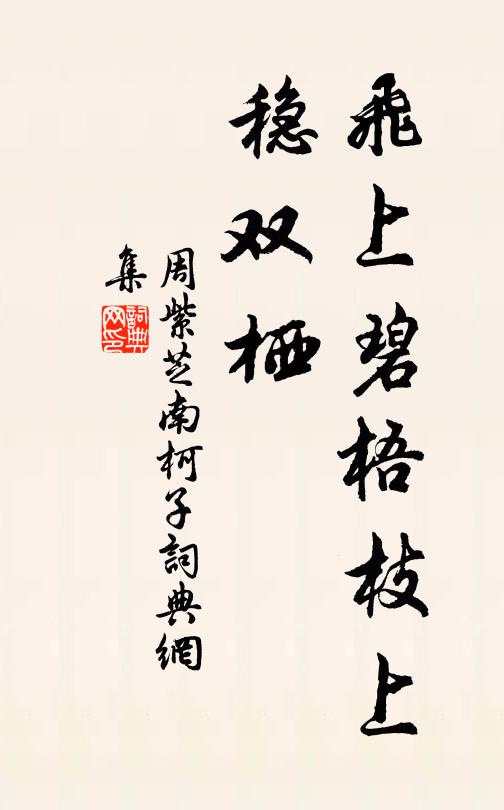 飛上碧梧枝上
稳双栖
周紫芝南柯子詞典網
集
詞典
网印